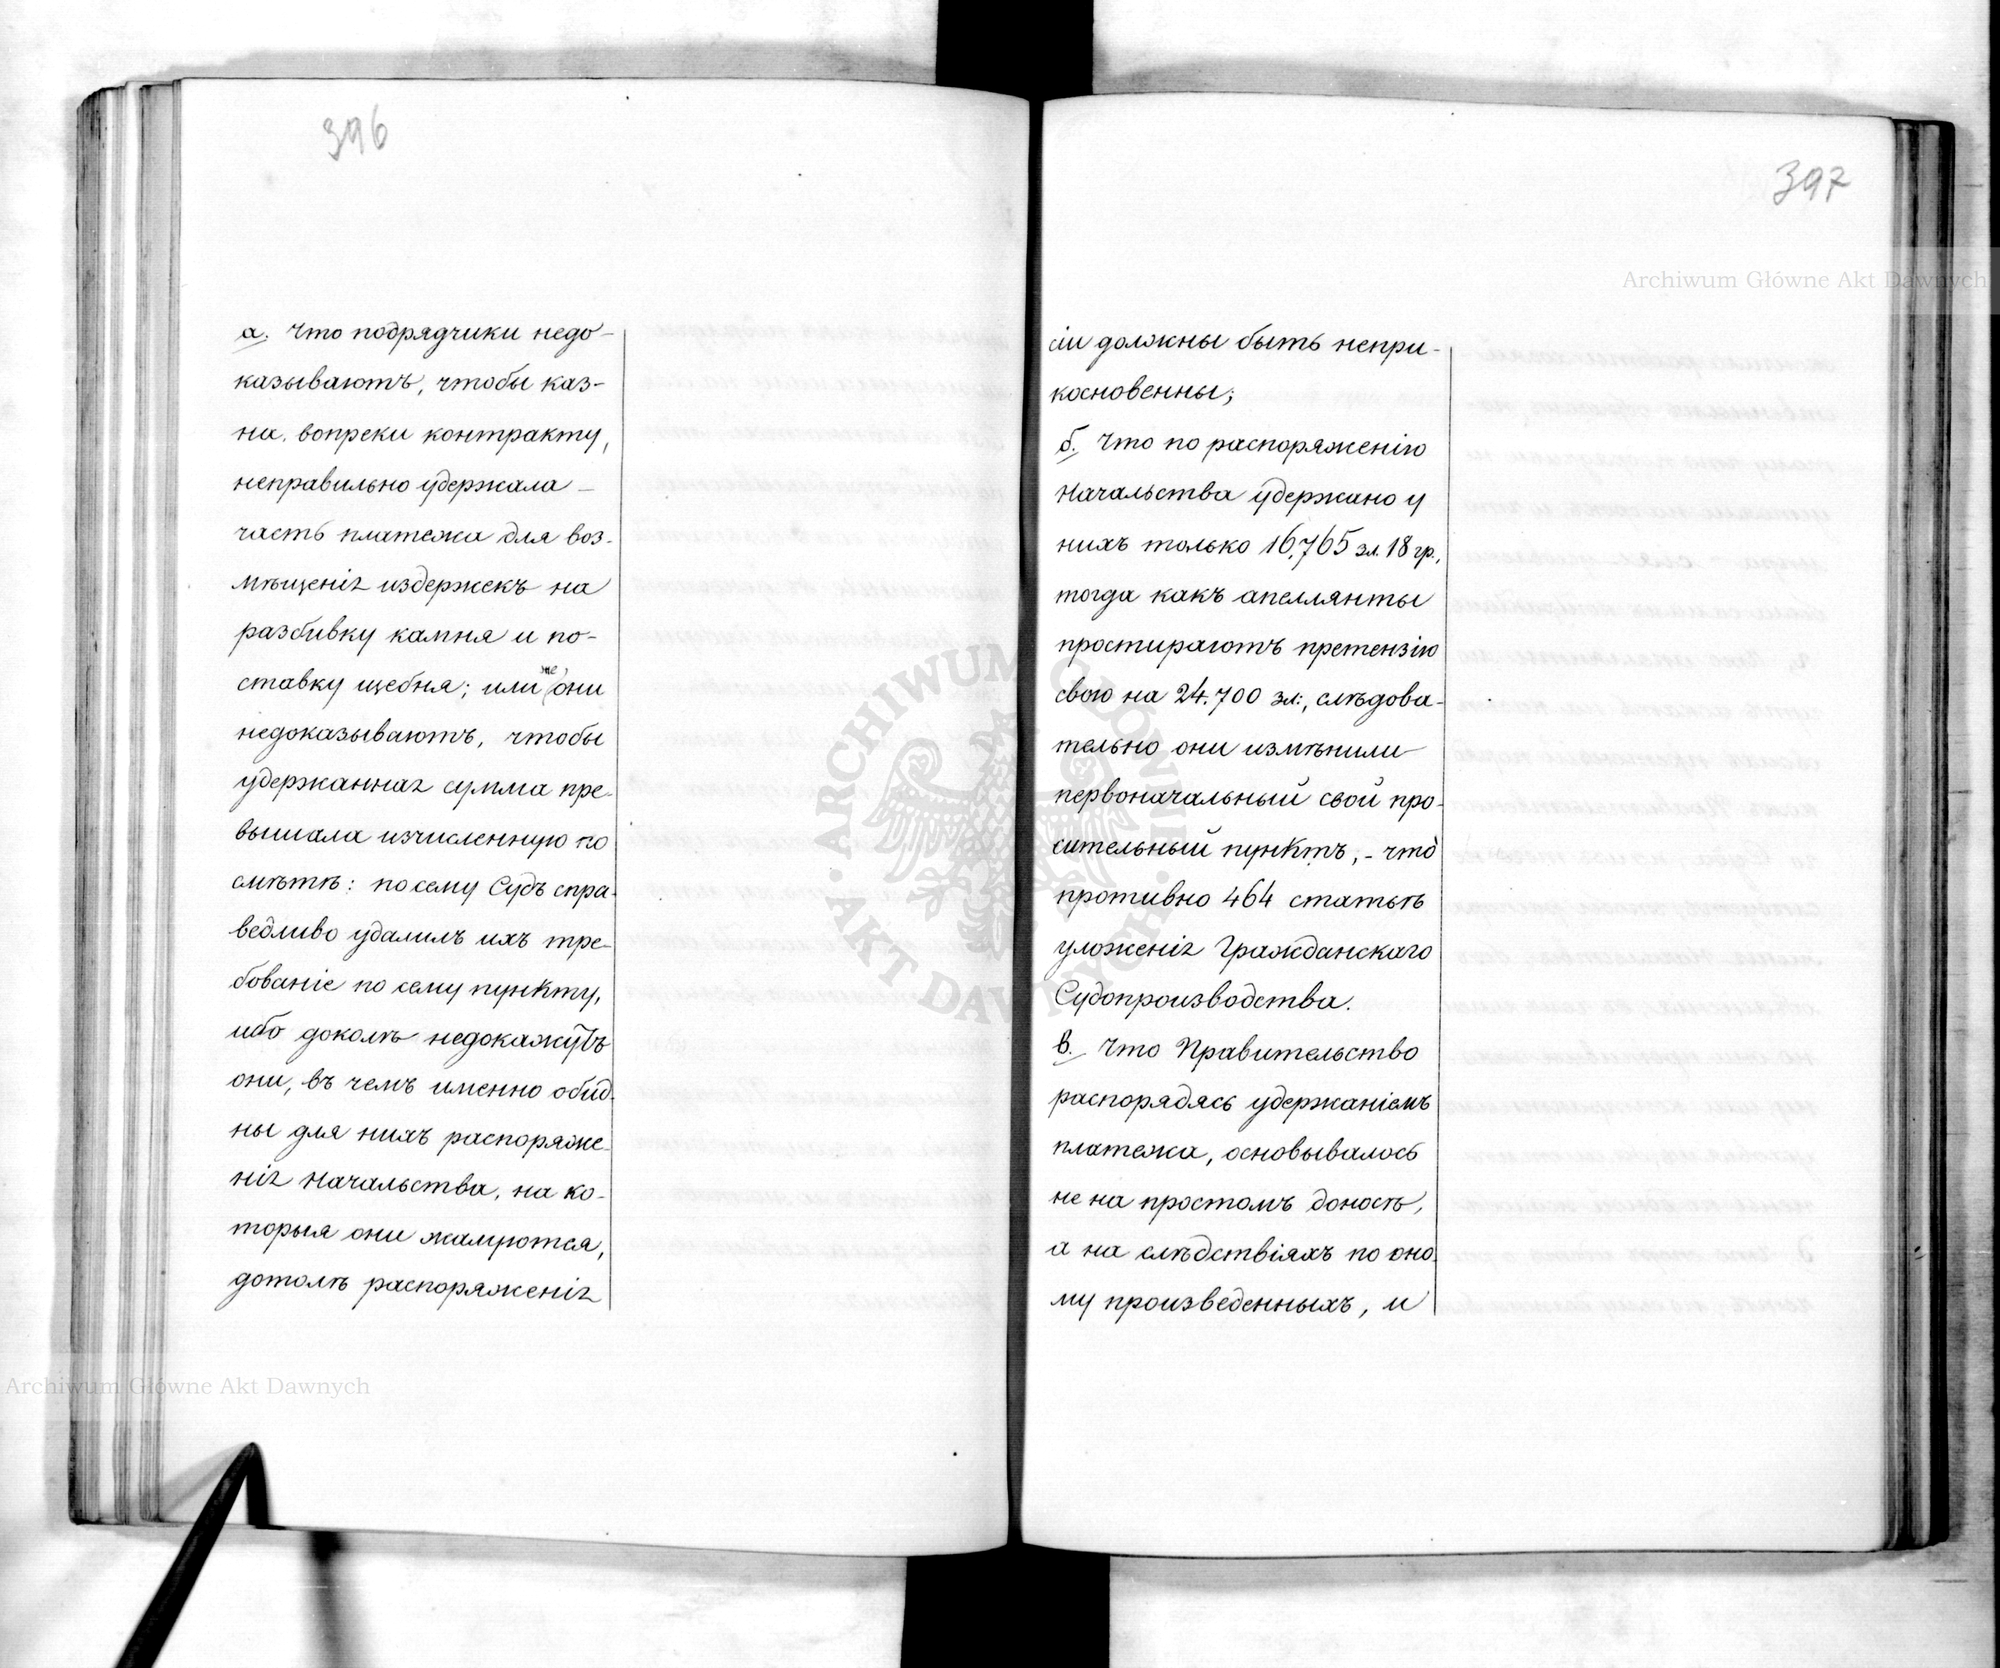 396
а. что подрядчики недо-
казываютъ, чтобы каз-
на, вопреки контракту,
неправильно удержала
часть платежа для воз-
мѣщенія издержекъ на
разбивку камня и по-
ставку щебня; или же они
недоказываютъ, чтобы
удержанная сумма пре-
вышала изчисленную по
смѣтѣ: посему Судъ спра-
ведливо удалилъ ихъ тре-
бованіе по сему пункту,
ибо доколѣ недокажутъ
они, въ чемъ именно обид-
ны для нихъ распоряже-
нія Начальства, на ко-
торыя они жалуются,
дотолѣ распоряженія
397
сіи должны быть непри-
косновенны;
б. Что по распоряженію
Начальства удержано у
нихъ только 16,765 зл. 18 гр.,
тогда какъ апеллянты
простираютъ претензію
свою на 24.700 зл:, слѣдова-
тельно они измѣнили
первоначальный свой про-
сительный пунктъ, - что
противно 464 статьѣ
уложенія Гражданскаго
Судопроизводства.
в. Что Правительство
распорядясь удержаніемъ
платежа, основывалось
не на простомъ доносѣ,
а на слѣдствіяхъ по оно-
му произведенныхъ, и
Archiwum Główne Akt Dawnych
Archiwum Główne Akt Dawnych
ARCHIWUM GŁÓWNE AKT DAWNYCH